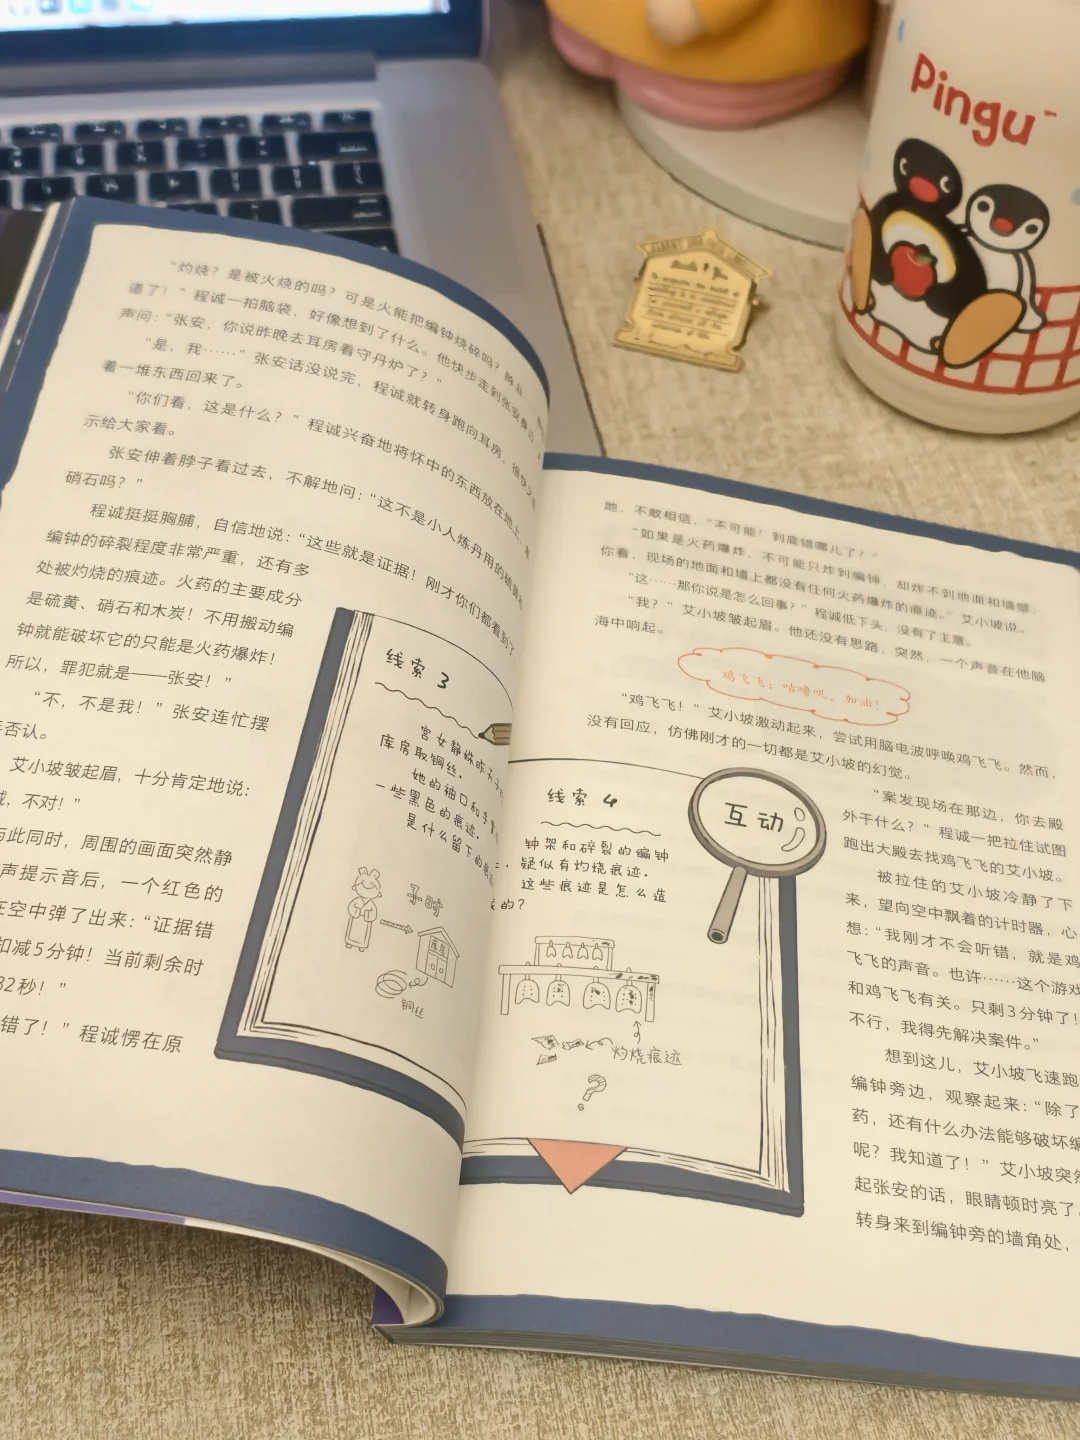 Pingu
“灼烧？是被火烧的吗？可是火能把编钟烧碎吗？除非
道了！”程诚一拍脑袋，好像想到了什么。他快步走到张安身边
声问：“张安，你说昨晚去耳房看守丹炉了？”
“是，我……”张安话没说完，程诚就转身跑向耳房，很快又
着一堆东西回来了。
“你们看，这是什么？”程诚兴奋地将怀中的东西放在地上，
示给大家看。
张安伸着脖子看过去，不解地问：“这不是小人炼丹用的硫黄和
硝石吗？”
程诚挺挺胸脯，自信地说：“这些就是证据！刚才你们都看到了
编钟的碎裂程度非常严重，还有多
处被灼烧的痕迹。火药的主要成分
是硫黄、硝石和木炭！不用搬动编
钟就能破坏它的只能是火药爆炸！
所以，罪犯就是——张安！”
“不，不是我！”张安连忙摆
否认。
艾小坡皱起眉，十分肯定地说：
，不对！”
此同时，周围的画面突然静
声提示音后，一个红色的
在空中弹了出来：“证据错
扣减5分钟！当前剩余时
32秒！”
错了！”程诚愣在原
线索 3
宫女静姝昨天
库房取铜丝。
她的袖口和手
一些黑色的痕迹。
是什么留下的痕
子时
库房
铜丝
地、不敢相信，“不可能！到底错哪儿了？”
“如果是火药爆炸，不可能只炸到编钟，却炸不到地面和墙壁。
你看，现场的地面和墙上都没有任何火药爆炸的痕迹。”艾小坡说。
“这……那你说是怎么回事？”程诚低下头，没有了主意。
“我？”艾小坡皱起眉。他还没有思路，突然，一个声音在他脑
海中响起。
鸡飞飞：咕噜呢，加油！
“鸡飞飞！”艾小坡激动起来，尝试用脑电波呼唤鸡飞飞。然而，
没有回应，仿佛刚才的一切都是艾小坡的幻觉。
线索 4
互动
钟架和碎裂的编钟
疑似有灼烧痕迹。
这些痕迹是怎么造
的？
灼烧痕迹
?
“案发现场在那边，你去殿
外干什么？”程诚一把拉住试图
跑出大殿去找鸡飞飞的艾小坡。
被拉住的艾小坡冷静了下
来，望向空中飘着的计时器，心
想：“我刚才不会听错，就是鸡
飞飞的声音。也许……这个游戏
和鸡飞飞有关。只剩3分钟了！
不行，我得先解决案件。”
想到这儿，艾小坡飞速跑
编钟旁边，观察起来：“除了
药，还有什么办法能够破坏编
呢？我知道了！”艾小坡突然
起张安的话，眼睛顿时亮了。
转身来到编钟旁的墙角处，